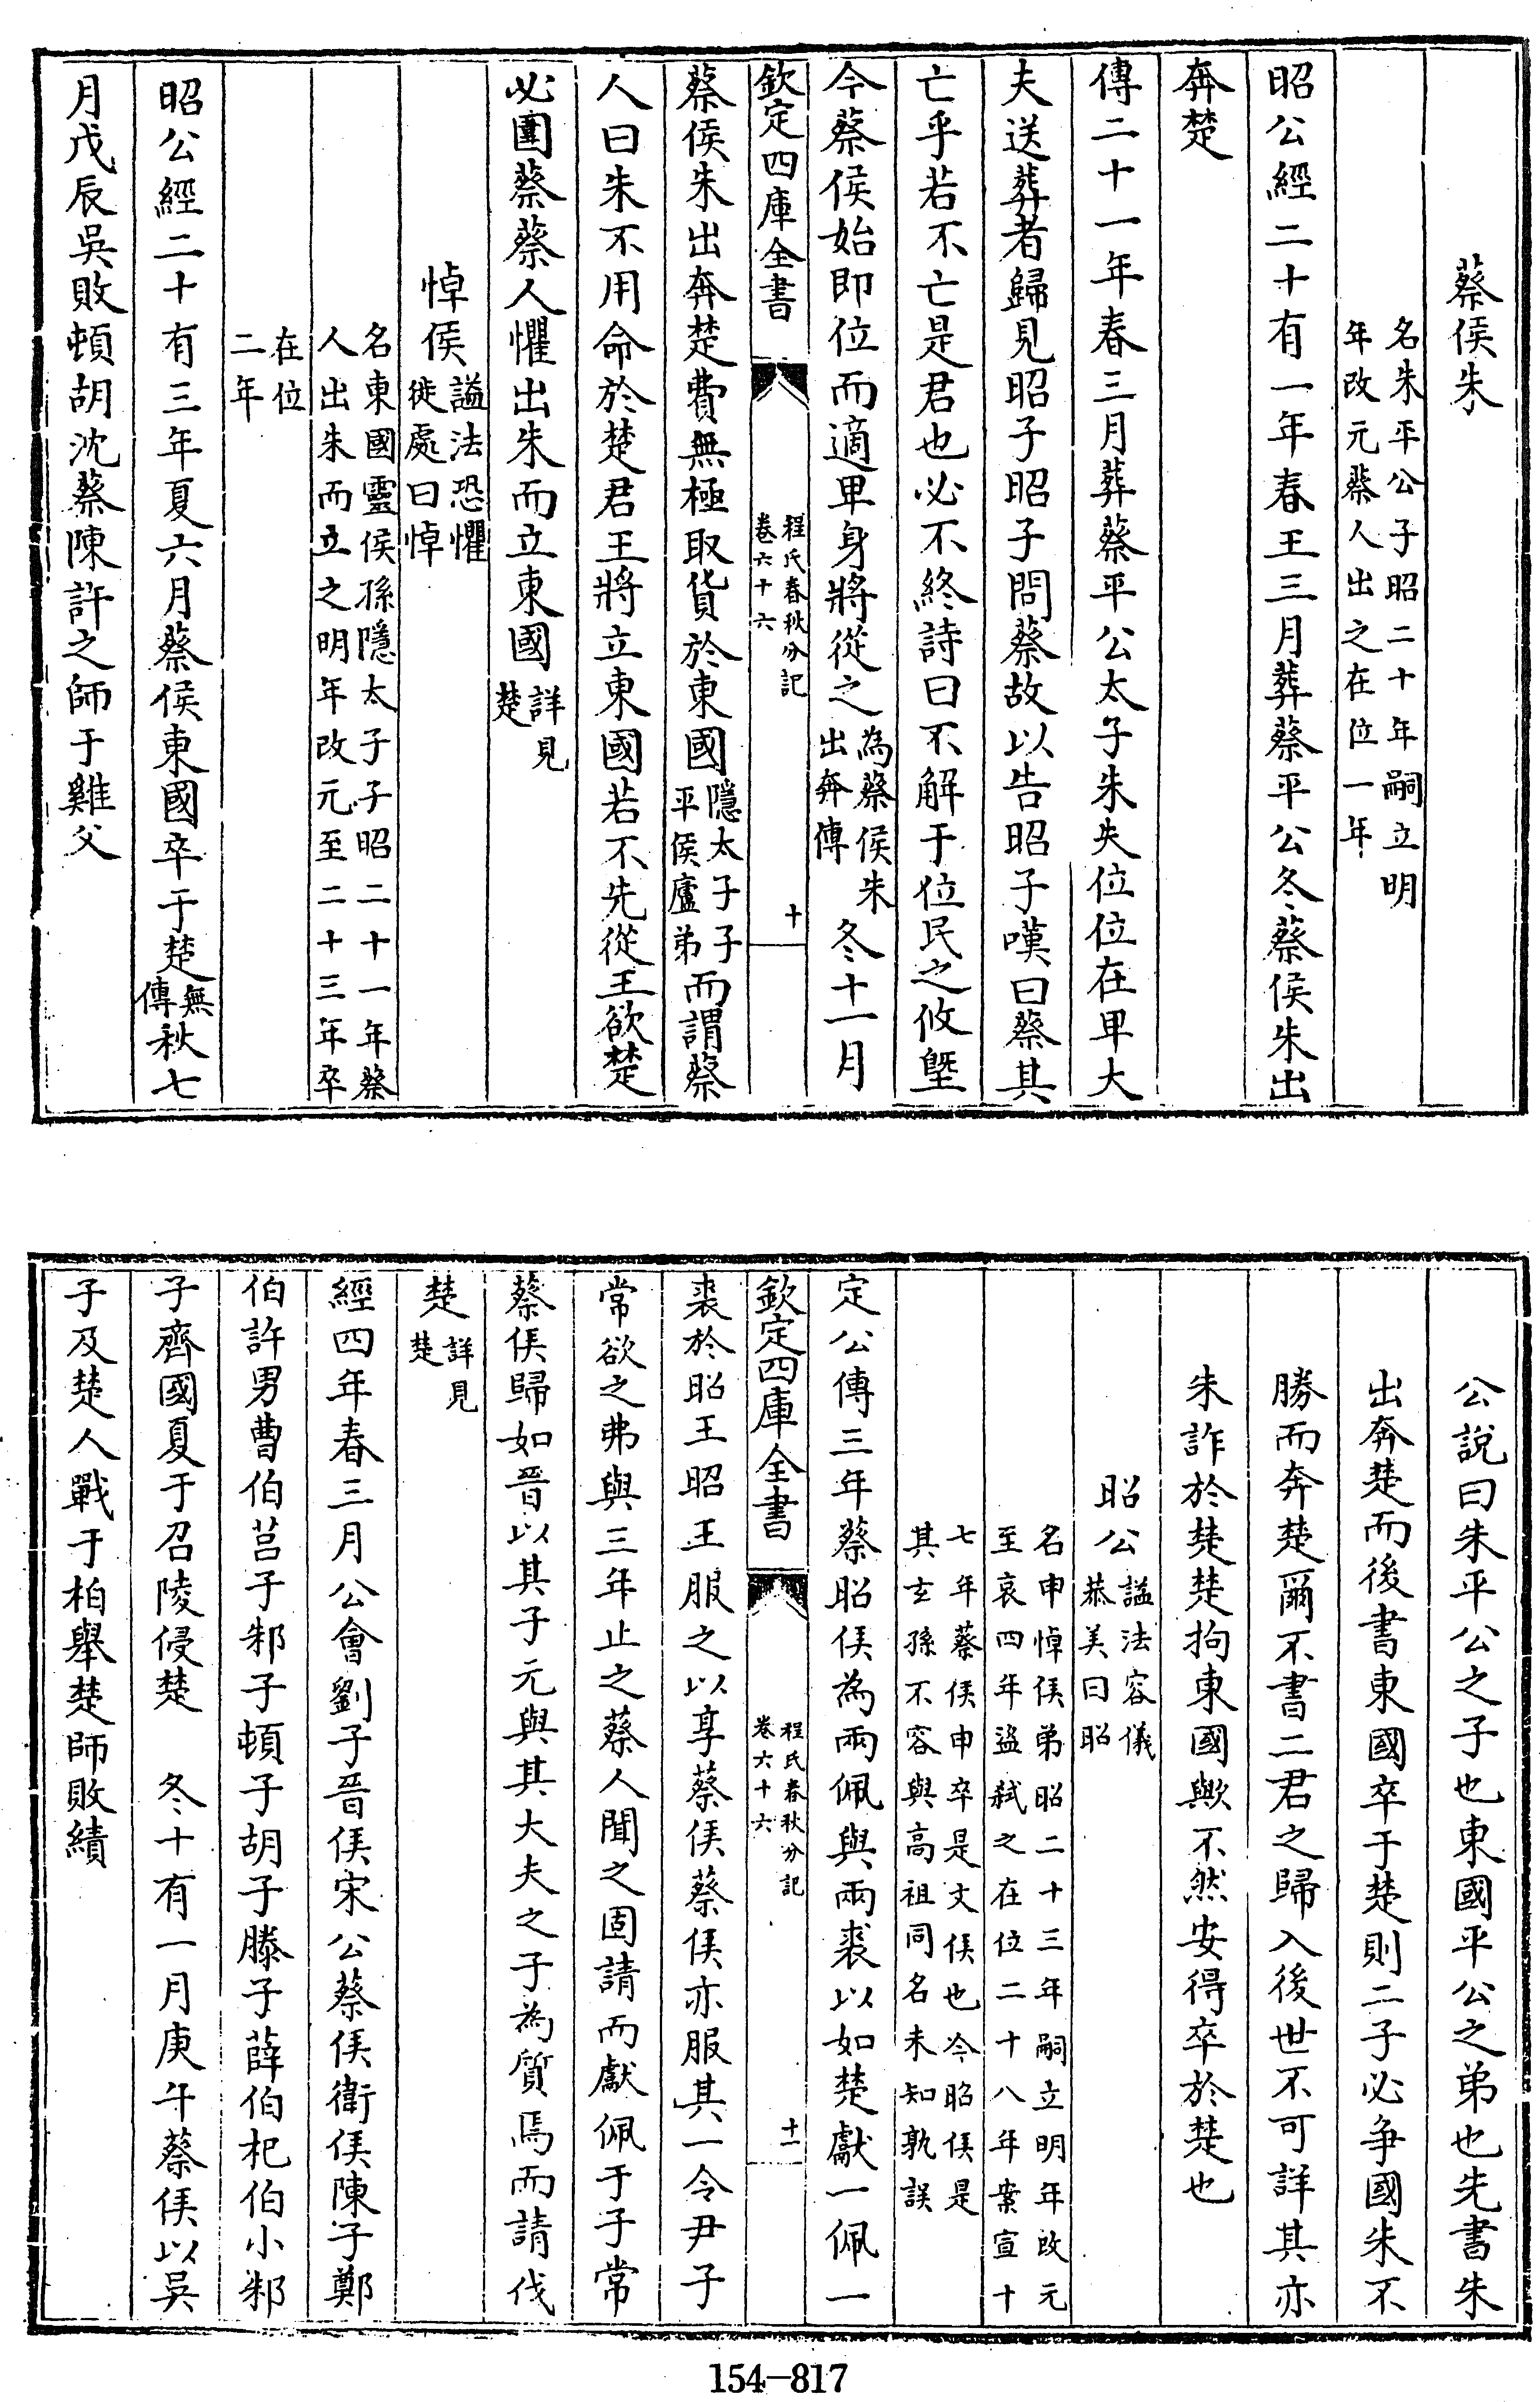 蔡侯朱
名朱平公子昭二十年嗣立明
年改元蔡人出之在位一年
昭公經二十有一年春王三月葬蔡平公冬蔡侯朱出
奔楚
傳二十一年春三月葬蔡平公太子朱失位位在卑大
夫送葬者歸見昭子昭子問蔡故以告昭子嘆曰蔡其
亡乎若不亡是君也必不終詩曰不解于位民之攸塈
今蔡侯始即位而適卑身將從之為蔡侯朱出奔傳冬十一月
欽定四庫全書 程氏春秋分記 卷六十六 十
蔡侯朱出奔楚費無極取貨於東國隱太子子平侯廬弟而謂蔡
人曰朱不用命於楚君王將立東國若不先從王欲楚
必圍蔡蔡人懼出朱而立東國詳見楚
悼侯諡法恐懼徙處曰悼
名東國靈侯孫隱太子子昭二十一年蔡
人出朱而立之明年改元至二十三年卒
在位
二年
昭公經二十有三年夏六月蔡侯東國卒于楚無傳秋七
月戊辰吳敗頓胡沈蔡陳許之師于雞父
公說曰朱平公之子也東國平公之弟也先書朱
出奔楚而後書東國卒于楚則二子必争國朱不
勝而奔楚爾不書二君之歸入後世不可詳其亦
朱詐於楚楚拘東國歟不然安得卒於楚也
昭公諡法容儀恭美曰昭
名申悼侯弟昭二十三年嗣立明年改元
至哀四年盜弑之在位二十八年案宣十
七年蔡侯申卒是文侯也今昭侯是
其玄孫不容與高祖同名未知孰誤
定公傳三年蔡昭侯為兩佩與兩裘以如楚獻一佩一
欽定四庫全書 程氏春秋分記 卷六十六 十一
裘於昭王昭王服之以享蔡侯蔡侯亦服其一令尹子
常欲之弗與三年止之蔡人聞之固請而獻佩于子常
蔡侯歸如晉以其子元與其大夫之子為質焉而請伐
楚詳見楚
經四年春三月公會劉子晉侯宋公蔡侯衛侯陳子鄭
伯許男曹伯莒子邾子頓子胡子滕子薛伯杞伯小邾
子齊國夏于召陵侵楚 冬十有一月庚午蔡侯以吳
子及楚人戰于柏舉楚師敗績
154-817